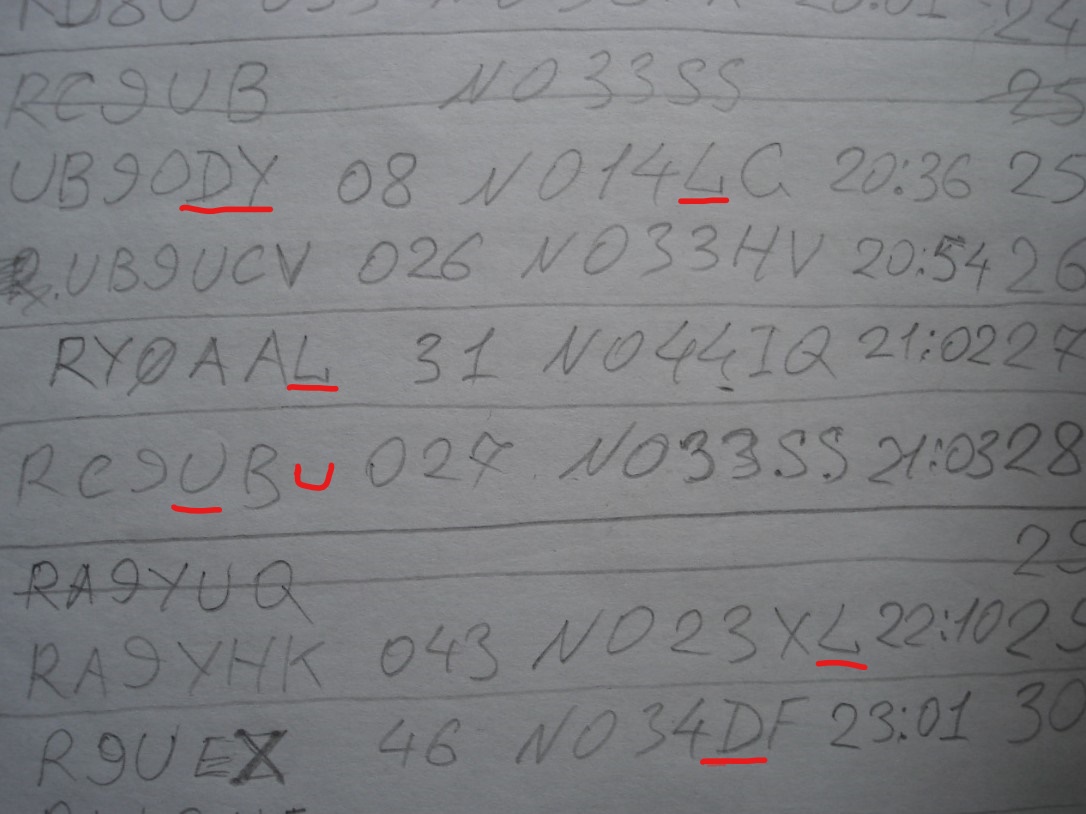 RC9UB NO33SS 25
UB9ODY 08 NO14LC 20:36 25
R.UB9UCV 026 NO33HV 20:54 26
RYØAAL 31 NO44IQ 21:02 27
RC9UBU 027 NO33SS 21:03 28
29
RA9YUQ
RA9YHK 043 NO23XL 22:10 29
R9UEX 46 NO34DF 23:01 30